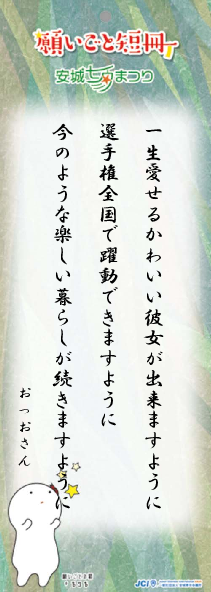 願いごと短冊
安城七夕まつり
一生愛せるかわいい彼女が出来ますように
選手権全国で躍動できますように
今のような楽しい暮らしが続きますように
おっおさん
JCI